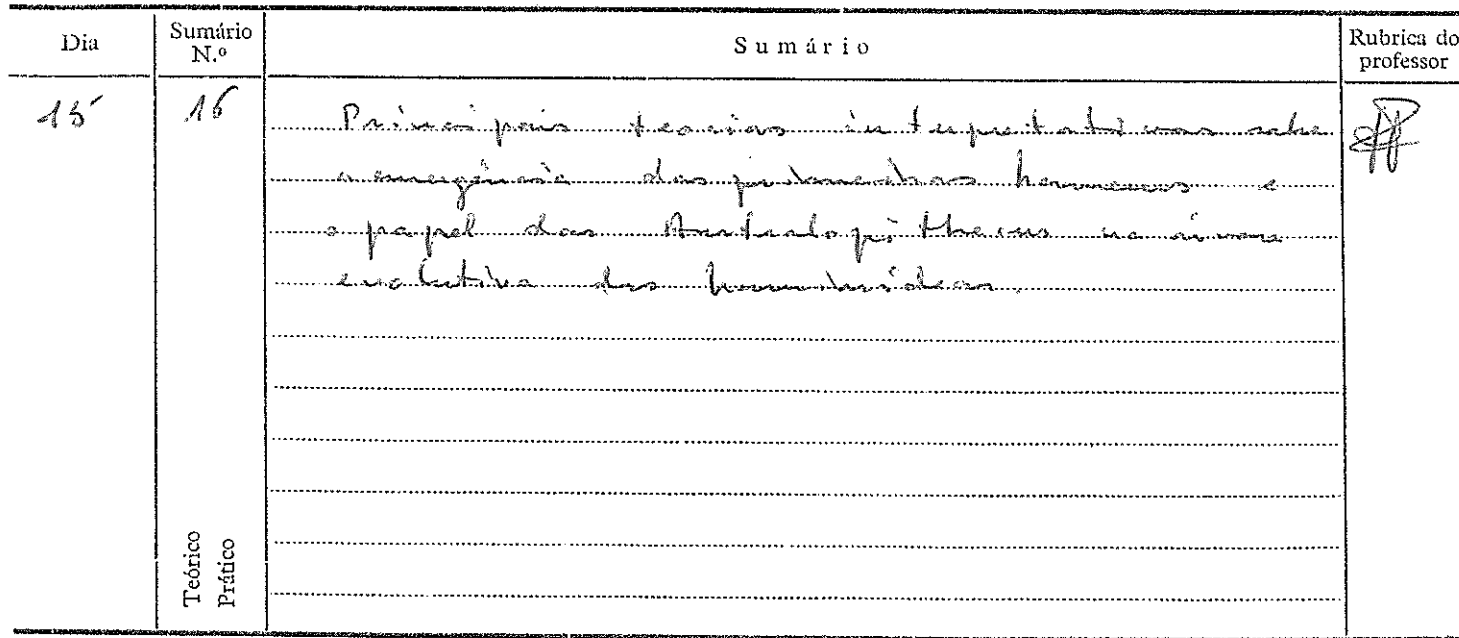 Dia
Sumário N.º
Sumário
Rubrica do professor
15
16
Principais teorias interpretativas sobre
a emergência dos primeiros homens e
o papel dos Australopithecus na árvore
evolutiva dos hominídeos.
Teórico
Prático